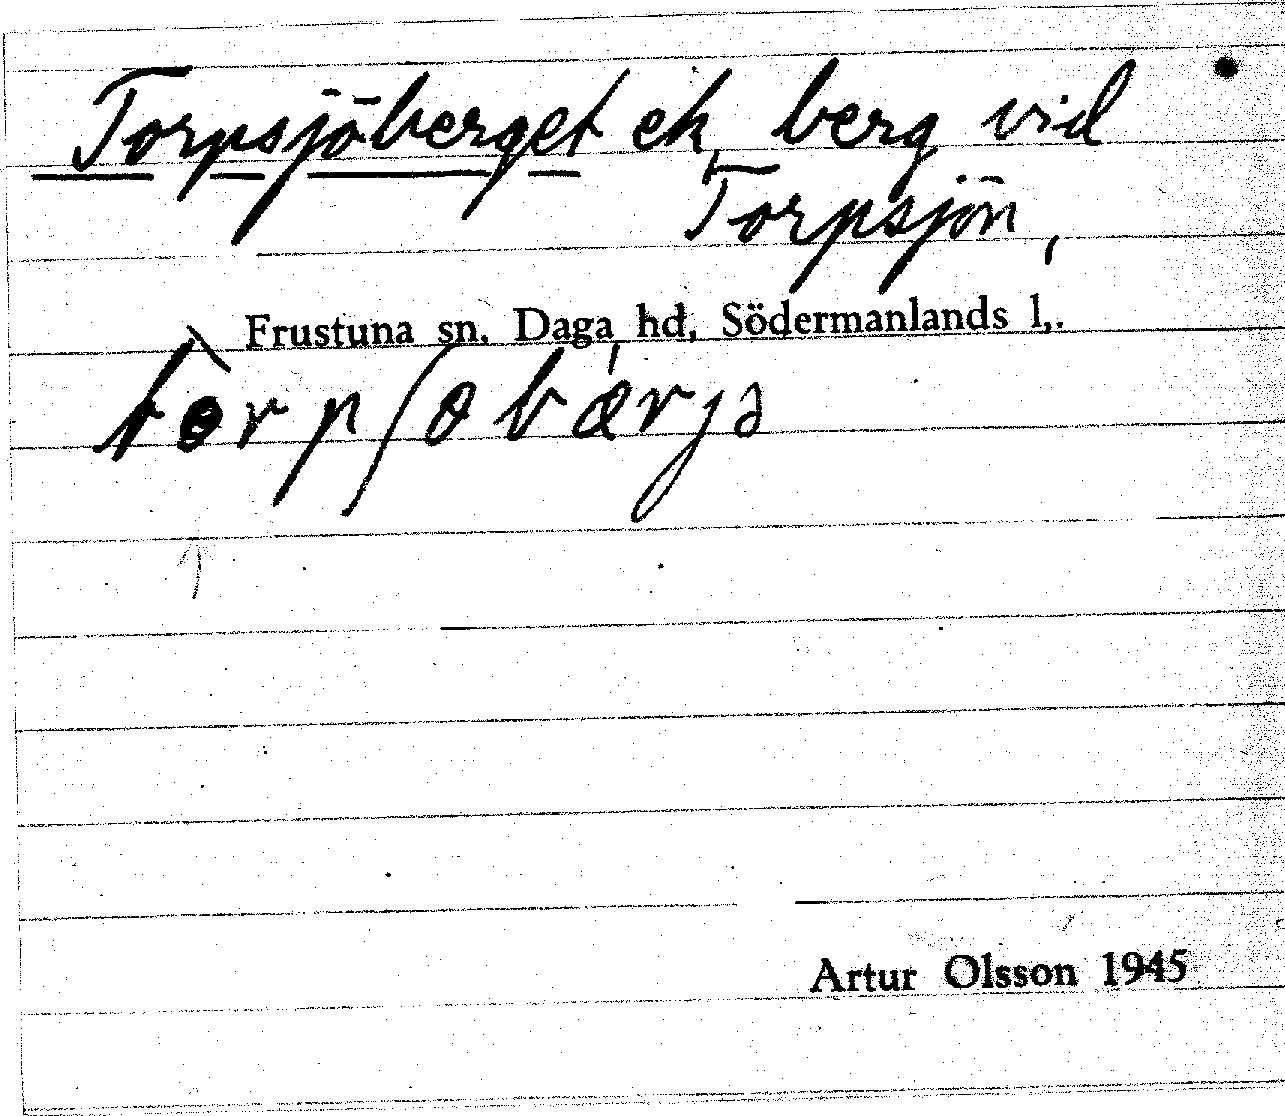 Torpsjöberget ek, berg vid
Torpsjön,
Frustuna sn. Daga hd, Södermanlands l,.
tòrpʃobá̀erjə
Artur Olsson 1945